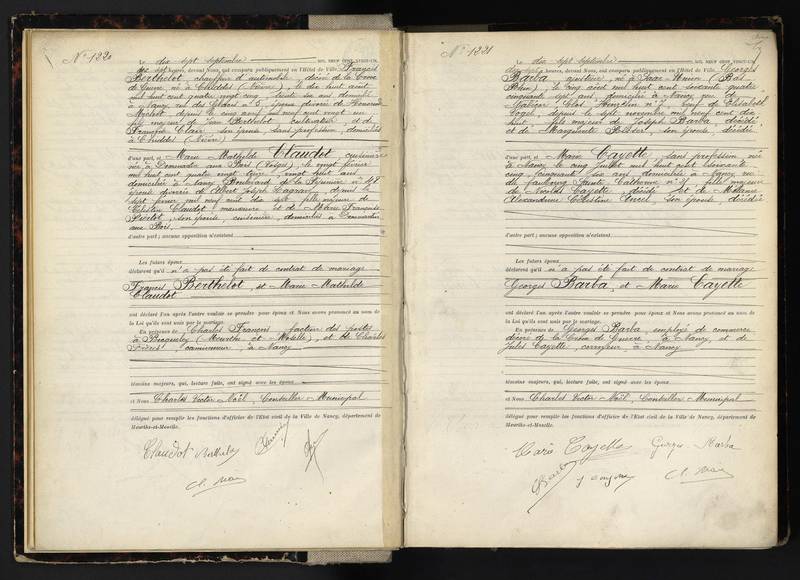 N° 1220
Le dix sept septembre MIL NEUF CENT VINGT-UN,
dix sept heures, devant Nous, ont comparu publiquement en l'Hôtel de Ville Francis
Berthelot, chauffeur d'automobile, décoré de la Croix
de Guerre, né à (Nièvre), le dix huit août
mil huit cent quatre vingt cinq, trente six ans, domicilié
à Nancy, rue des n° 5, époux divorcé de
Michot, depuis le cinq mil neuf cent vingt un
fils majeur de Jean Berthelot, cultivateur, et de
Françoise Clair, son épouse, sans profession, domiciliés
à (Nièvre)
d'une part, et Marie Mathilde Claudot, cuisinière
née à Domvallier aux Bois (Vosges) le vingt février
mil huit cent quatre vingt treize, vingt huit ans
domiciliée à Nancy, Boulevard de la Pépinière n° 49
épouse divorcée de Albert Joseph depuis le
sept février mil neuf cent dix sept, fille majeure de
Claudot, manœuvre et de Marie Françoise
son épouse, cuisinière, domiciliés à
aux Bois,
d'autre part; aucune opposition n'existant
Les futurs époux
déclarent qu'il n'a pas été fait de contrat de mariage
Francis Berthelot, et Marie Mathilde
Claudot
ont déclaré l'un après l'autre vouloir se prendre pour époux et Nous avons prononcé au nom de
la Loi qu'ils sont unis par le mariage.
En présence de Charles François, facteur des postes
à (Meurthe et Moselle), et de Charles
camionneur, à Nancy
témoins majeurs, qui, lecture faite, ont signé avec les époux
et Nous Charles Victor Noël, Conseiller Municipal
délégué pour remplir les fonctions d'officier de l'Etat civil de la Ville de Nancy, département de
Meurthe-et-Moselle.
Claudot Mathilde
Ch. Noël
N° 1221
Le dix sept septembre MIL NEUF CENT VINGT-UN,
dix sept heures, devant Nous, ont comparu publiquement en l'Hôtel de Ville Georges
Barba, né à (Bas
Rhin), le cinq août mil huit cent soixante quatre
cinquante sept ans, domicilié à Nancy, rue de
n° 7, veuf de Elisabeth
Vogel, depuis le sept novembre mil neuf cent dix
huit, fils majeur de Joseph Barba, décédé,
et de Marguerite son épouse, décédée
d'une part, et Marie Cayette, sans profession, née
à Nancy, le cinq juillet mil huit cent soixante
cinq, cinquante six ans, domiciliée à Nancy, rue
du faubourg Sainte Catherine n° 4, fille majeure
de Nicolas Cayette, décédé, et de Mélanie
Alexandrine Célestine Ancel, son épouse, décédée
d'autre part; aucune opposition n'existant
Les futurs époux
déclarent qu'il n'a pas été fait de contrat de mariage
Georges Barba, et Marie Cayette
ont déclaré l'un après l'autre vouloir se prendre pour époux et Nous avons prononcé au nom de
la Loi qu'ils sont unis par le mariage.
En présence de Georges Barba, employé de commerce
décoré de la Croix de Guerre, à Nancy, et de
Jules Cayette, à Nancy
témoins majeurs, qui, lecture faite, ont signé avec les époux
et Nous Charles Victor Noël, Conseiller Municipal
délégué pour remplir les fonctions d'officier de l'Etat civil de la Ville de Nancy, département de
Meurthe-et-Moselle.
Marie Cayette Georges Barba
Barba J Cayette Ch. Noël